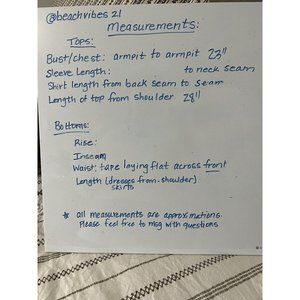 @beachvibes 21
Measurements:
Tops:
Bust/chest: armpit to armpit 23"
Sleeve Length: to neck seam
Shirt length from back seam to seam
Length of top from shoulder 28"
Bottoms:
Rise:
Inseam
Waist: tape laying flat across front
Length (dresses from shoulder)
skirts
* all measurements are approximations.
Please feel free to msg with questions